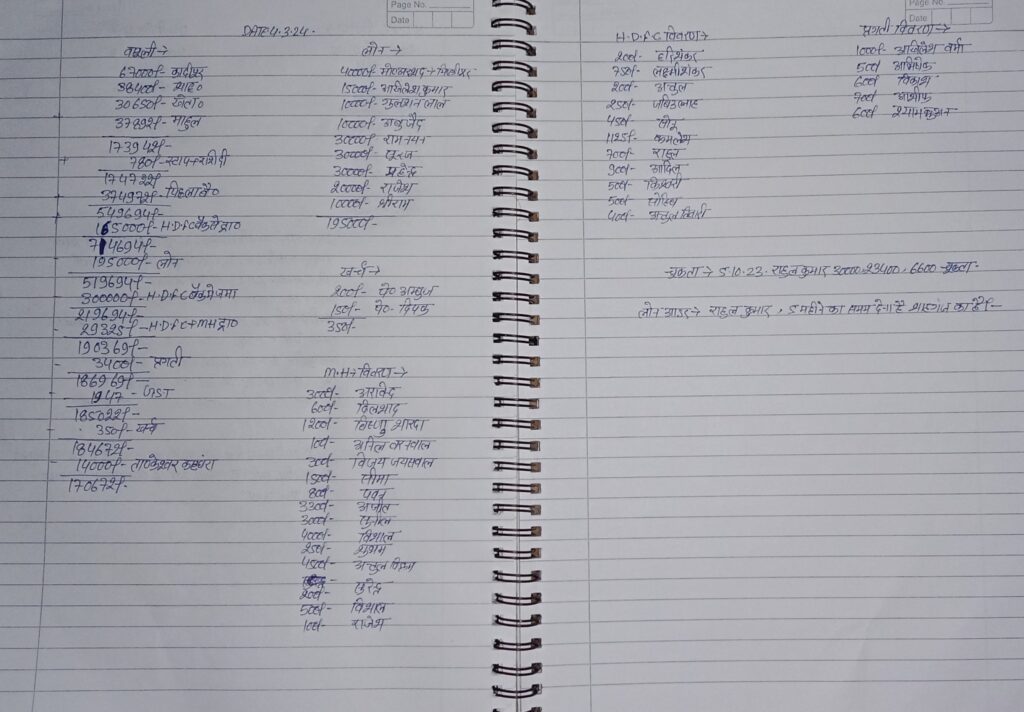 Page No.
Date
DATE 4.3.24.
वसूली →
67000/- कादीपुर
38400/- शाह०
30650/- खेता०
37892/- माहुल
173942/-
+ 780/- स्टाम्प+राशीदी
174722/-
+ 374972/- पिछला वै०
549694/-
+ 165000/- H.D.F.C बैंक से ड्रा०
714694/-
- 195000/- लोन
519694/-
- 300000/- H.D.F.C बैंक मे जमा
219694/-
- 29325/- H.D.F.C+M.H ड्रा०
190369/-
- 3400/- प्रगती
186969/-
- 1947 - GST
185022/-
- 350/- खर्च
184672/-
- 14000/-
170672/-
लोन →
40000/-
15000/- अखिलेश कुमार
10000/- गुलशन लाल
10000/- अबु जैद
30000/- राम नयन
30000/- सूरज
30000/- महेन्द्र
20000/- राजेश
10000/- श्रीराम
195000/-
खर्च →
200/- पे० अम्बुज
150/- पे० दिपक
350/-
M.H → विवरण →
3000/- अरविंद
600/- दिलशाद
1200/- विष्णु शारदा
100/- अनिल बरनवाल
300/- विजय जयसवाल
1500/- सीमा
800/- पवन
3300/- अजीत
3000/- सुनील
4000/- विशाल
250/- शुभम
4500/- अतुल
200/- सुरेन्द्र
500/- विशाल
100/- राजेश
Page No.
Date
H.D.F.C विवरण →
200/- हरिशंकर
750/- लक्ष्मीशंकर
200/- अतुल
250/-
450/- सोनू
1125/- कमलेश
700/- राहुल
900/- आदिल
500/- किश्वरी
500/- साहिब
400/- अतुल तिवारी
प्रगती विवरण →
1000/- अखिलेश वर्मा
500/- अभिषेक
600/- विकाश
700/- आशीफ
600/- श्याम कुंवर
चुकता → 5.10.23. राहुल कुमार 30000.23400, 6600 चुकता.
लोन आडर → राहुल कुमार, 5 महीने का समय देना है शाहगंज का है।-